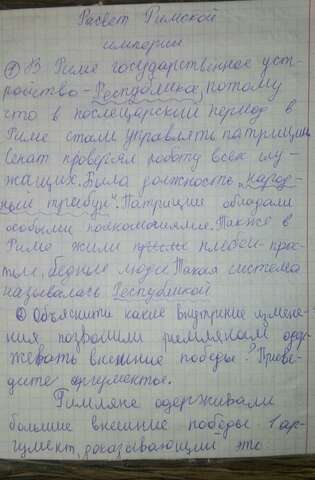 Расвет Римской
империи
① В Риме государственное уст-
ройство - Республика, потому
что в послецарский период в
Риме стали управлять патриции
Сенат проверял работу всех слу-
жащих. Была должность „народ-
ный трибун". Патриции обладали
особыми полномочиями. Также в
Риме жили плебеи - прос-
тые, бедные люди. Такая система
называлась Республикой
② Объяснити какие внутрение измене-
ния позволили римлянам одер-
живать внешние победы? Приве-
дите аргументы.
Римляне одерживали
большие внешние победы 1 ар-
гумент, доказывающий это